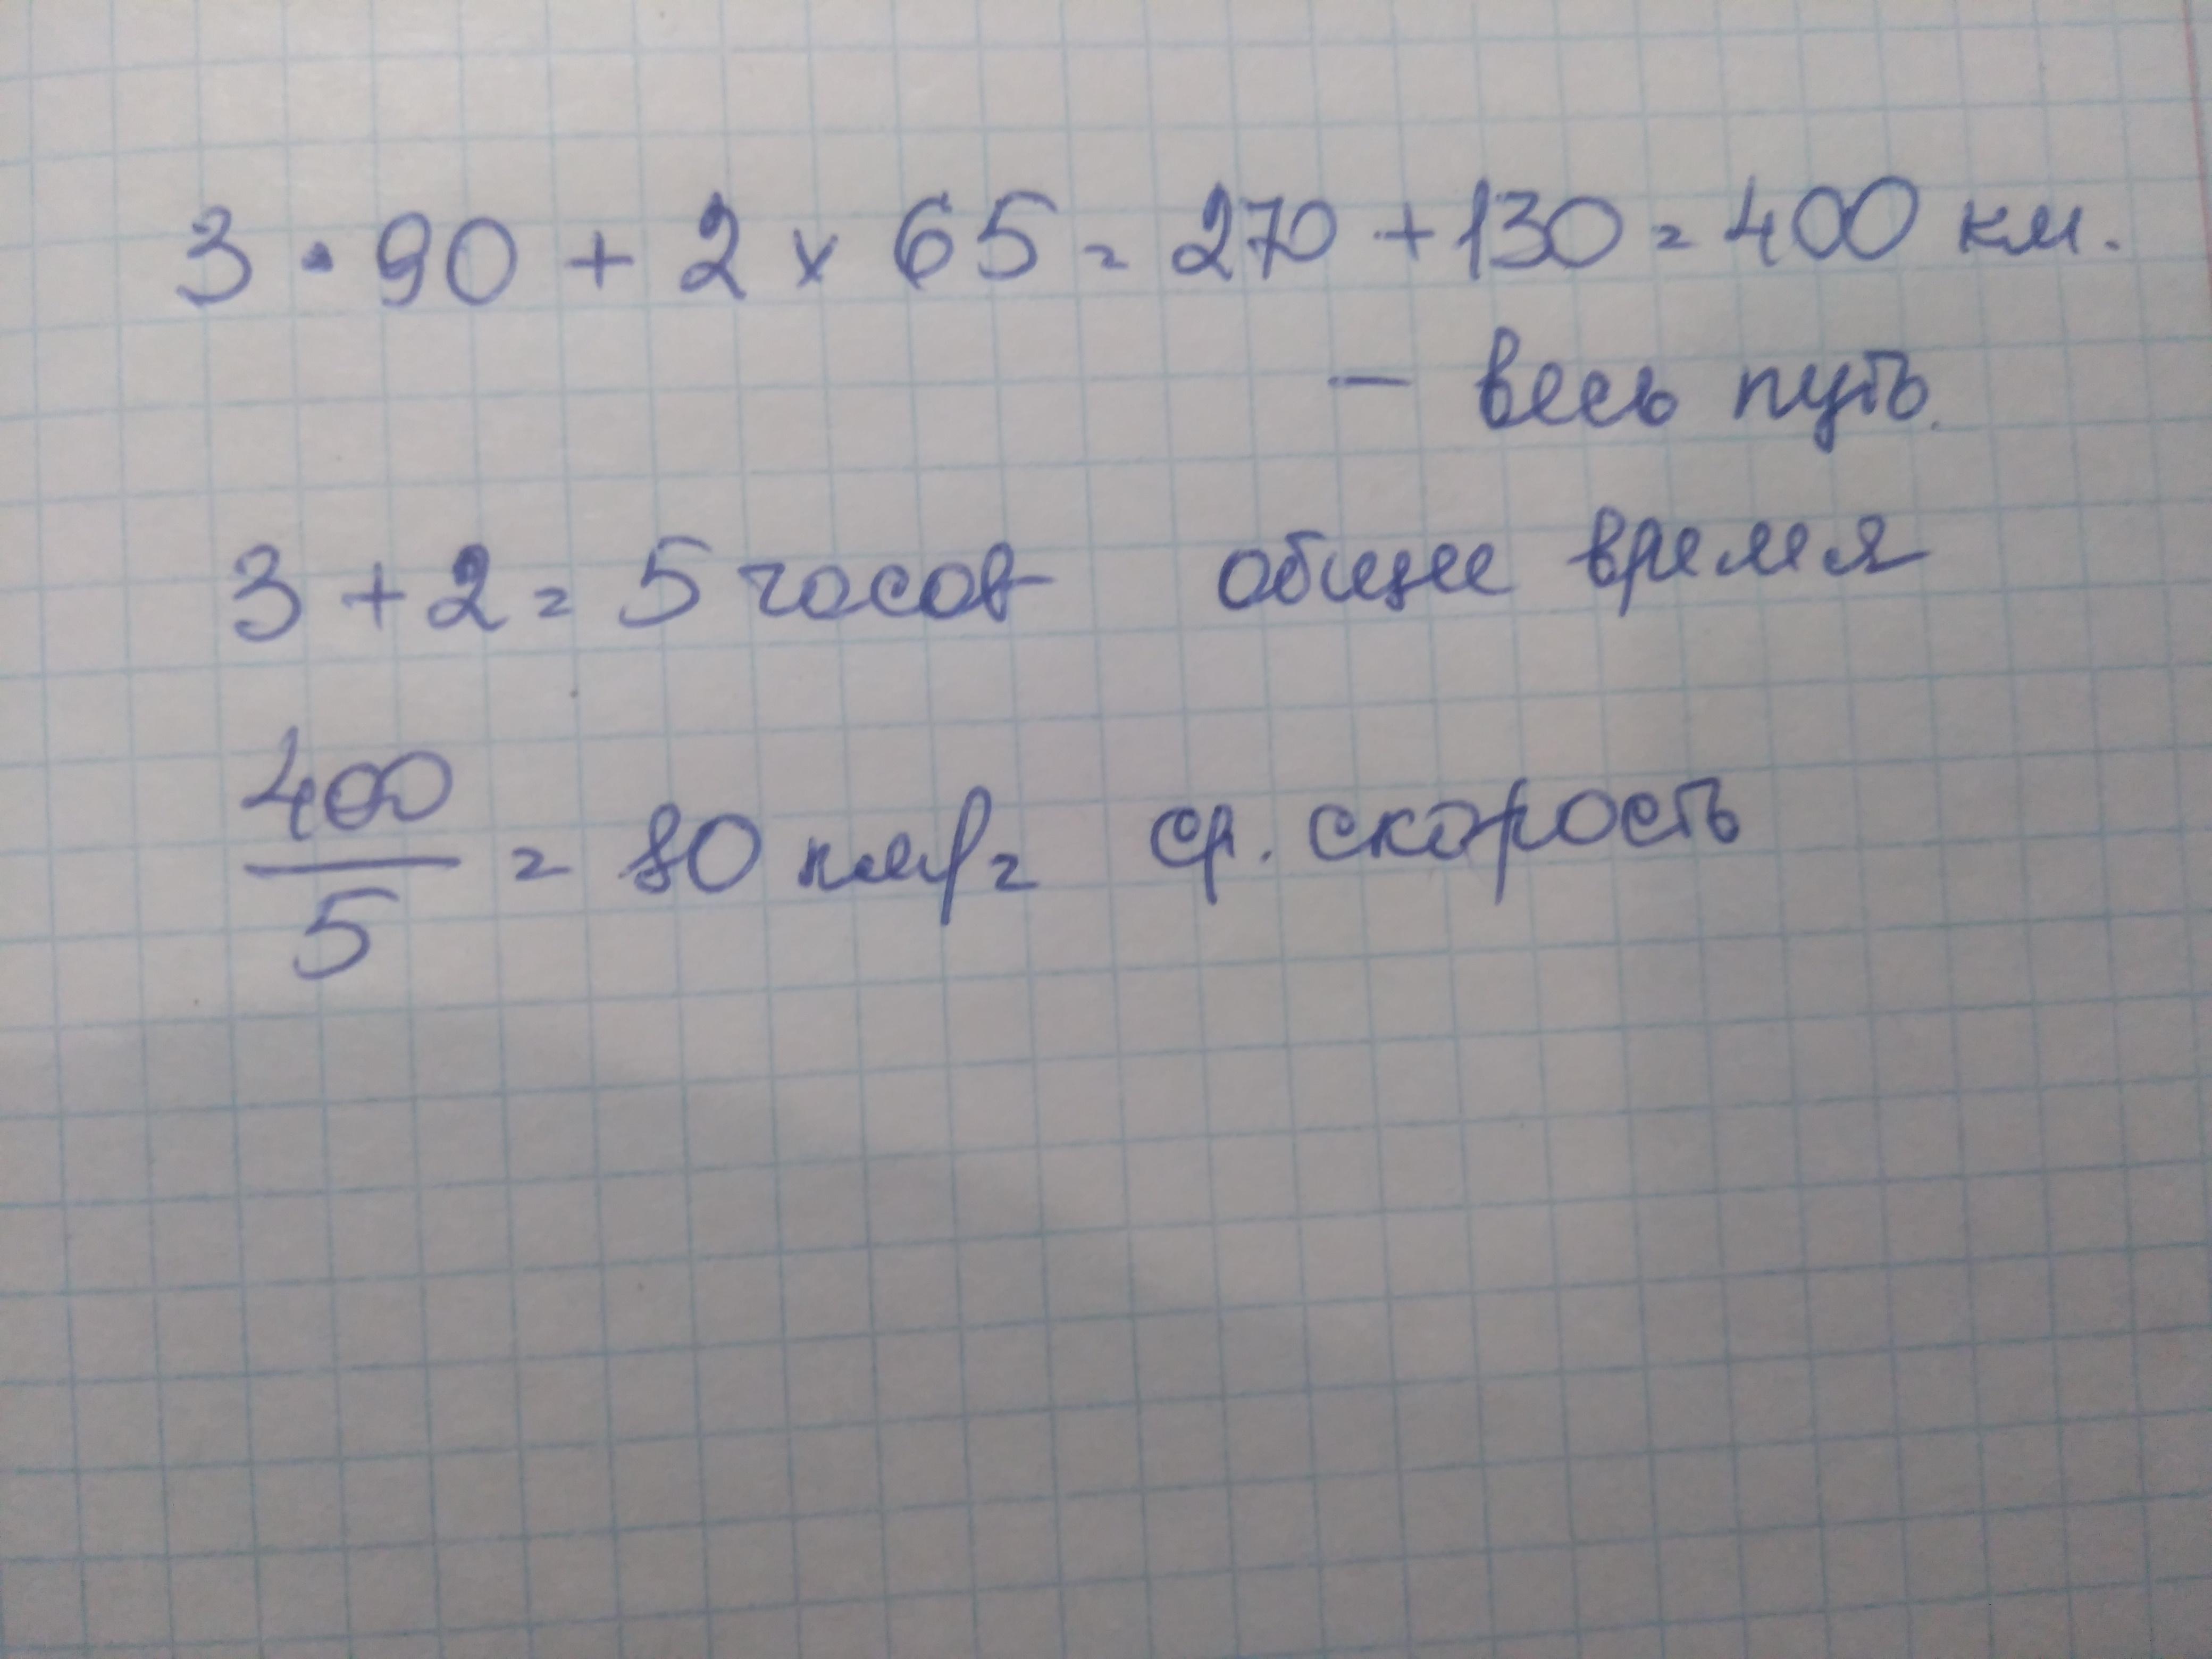 3 · 90 + 2 × 65 = 270 + 130 = 400 км.
— весь путь.
3 + 2 = 5 часов общее время
400/5 = 80 км/г ср. скорость